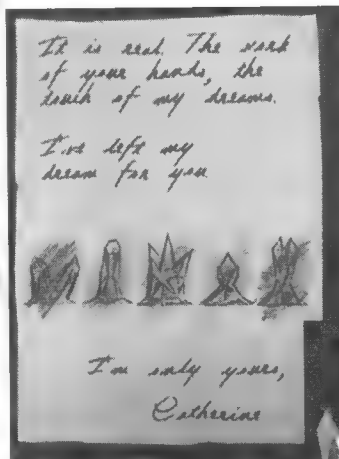 It is real. The work
of your hands, the
touch of my dreams.
I've left my
dream for you
I'm only yours,
Catherine